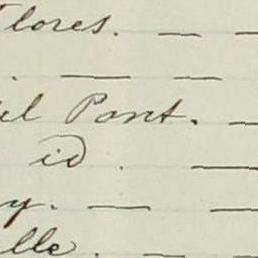 Flores. — —
. — —
il Pont. —
id . —
y. — —
lle . — —